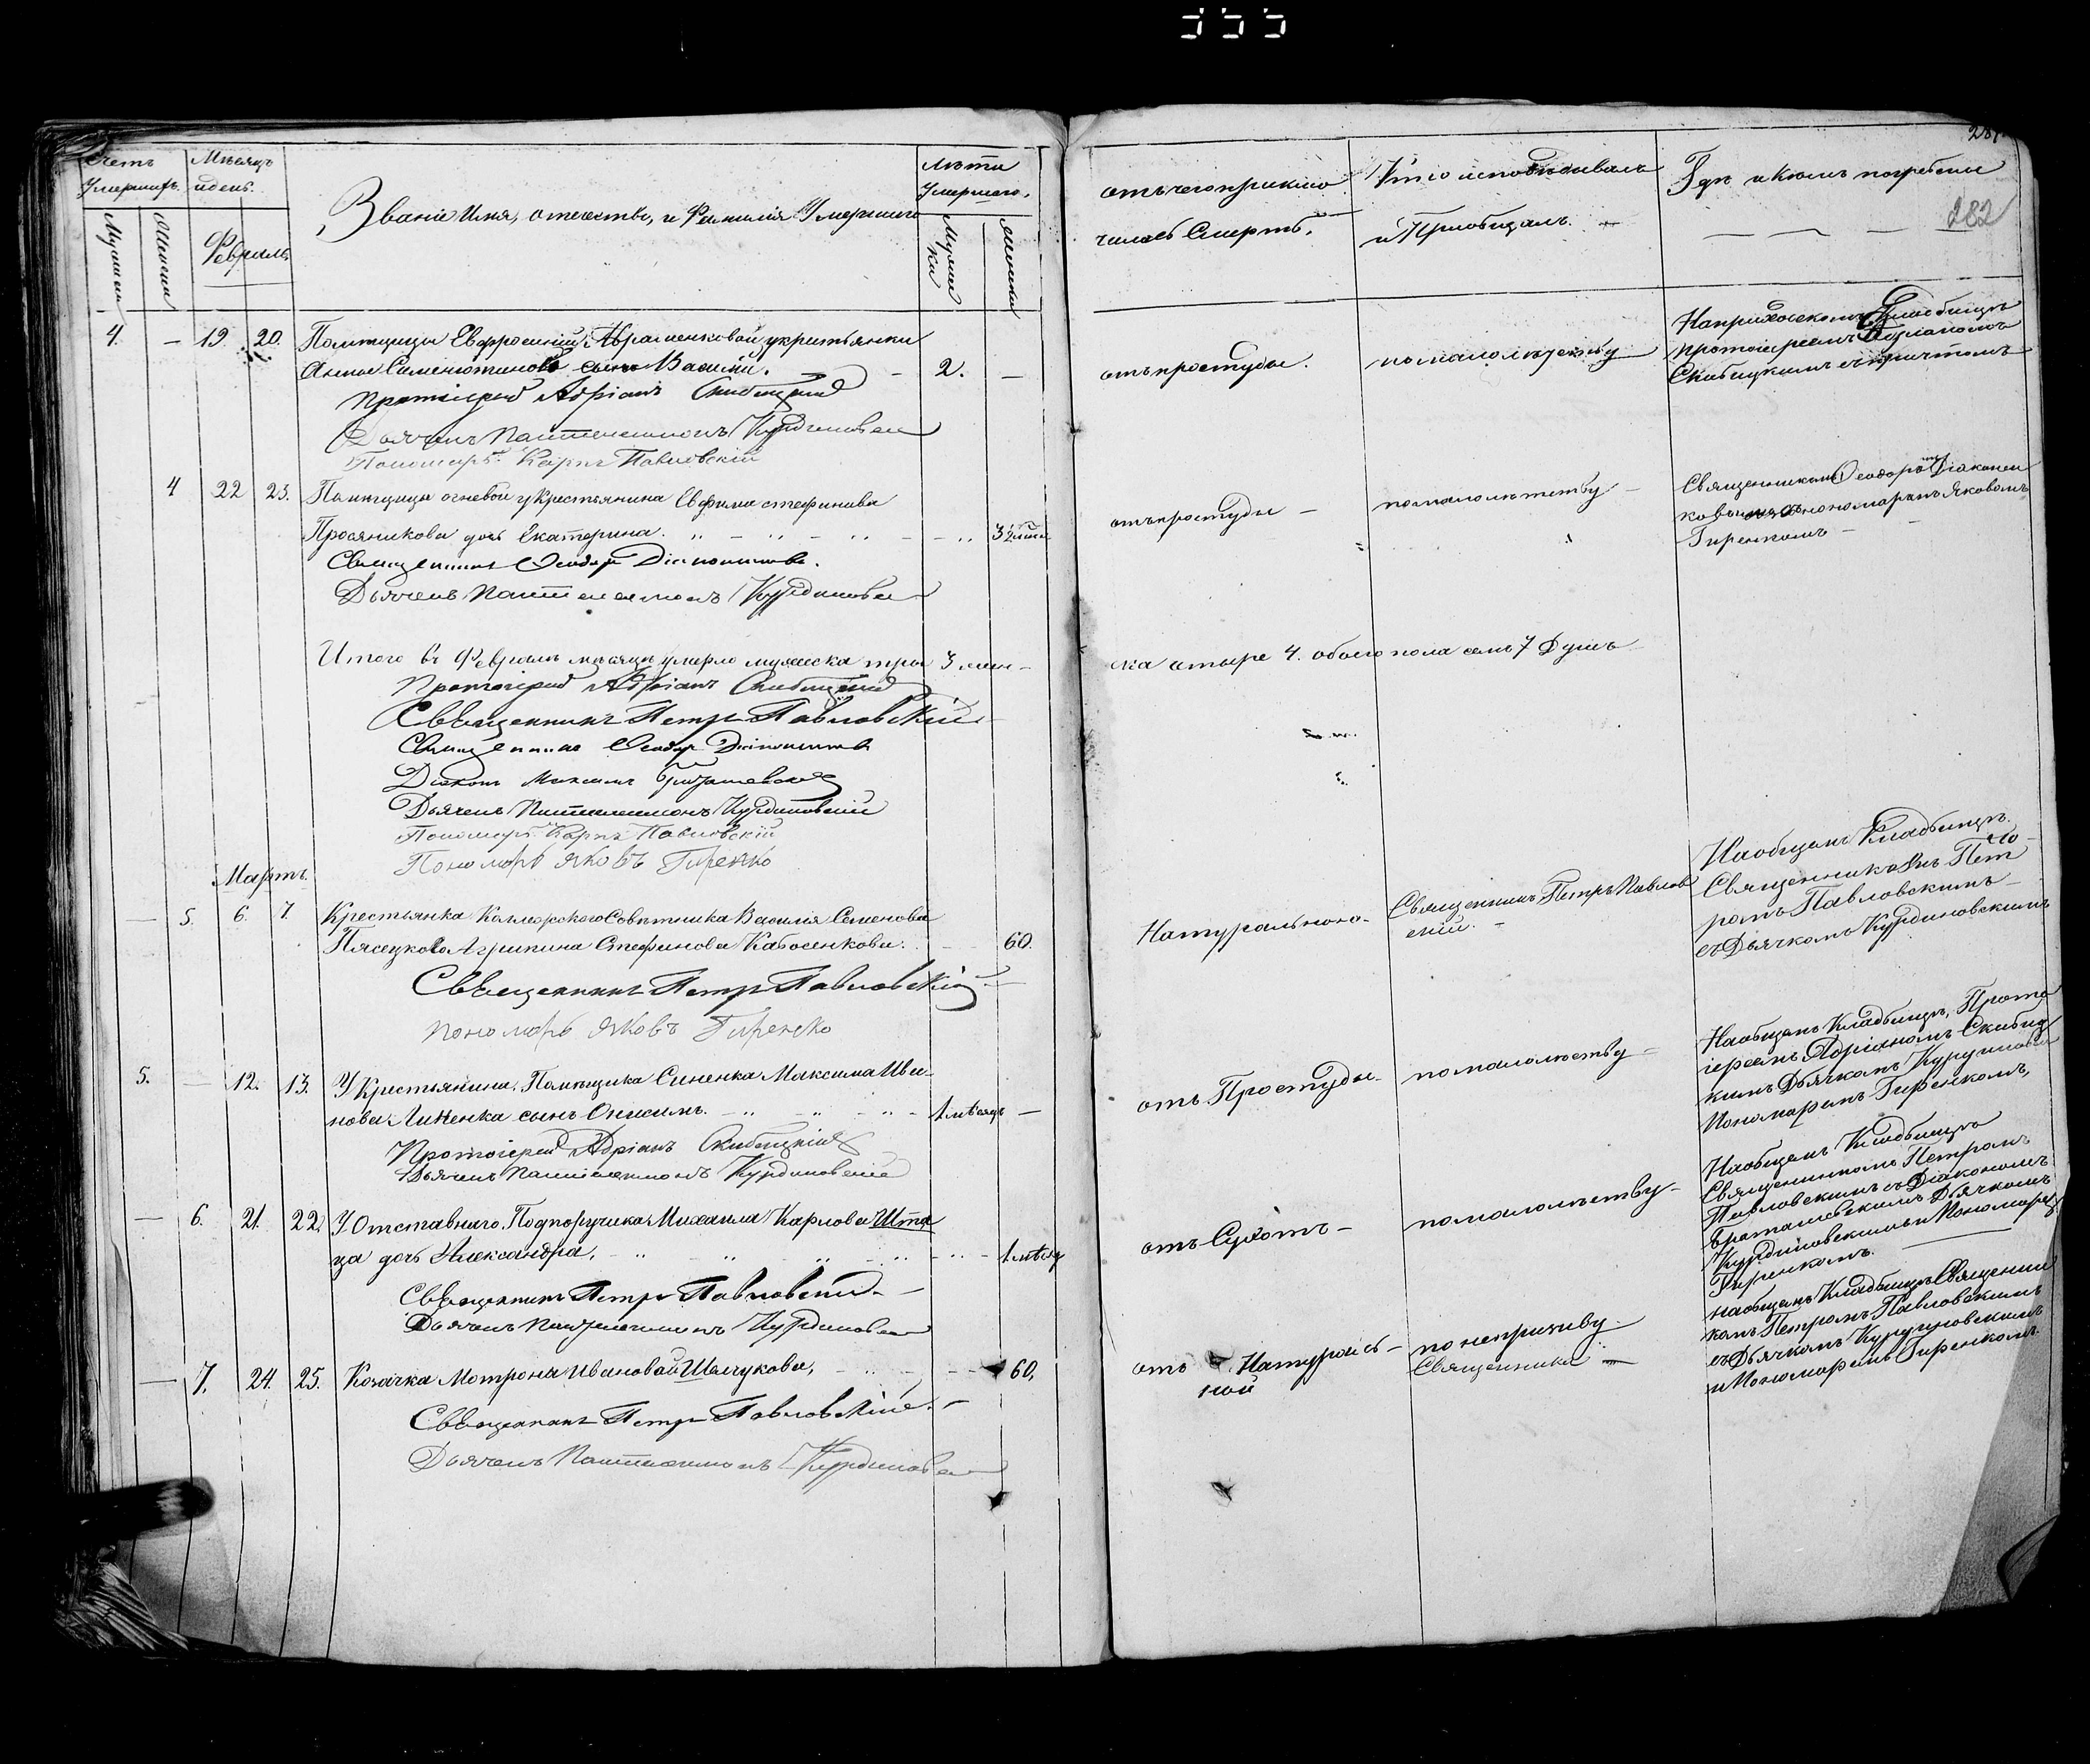 555
Счетъ Умершихъ
Мѣсяцъ и день.
Званіе Имя, отечество, и Фамилія Умершаго
лѣта Умершаго.
Мужеска
Женска
Февраль
Мужески
Женски
отъ чего приклю
чилась Смерть.
Кто исповѣдывалъ
и Пріобщалъ.
Гдѣ и кѣмъ погребены
282
4. — 19. 20. Помѣщицы Евфросиніи Абраменковой у крестьянки
Анны Семенютиновой сынъ Василій. — 2. —
отъ простуды.
по малолѣтству
На приходскомъ Кладбищѣ
протоіереемъ Адріаномъ
Скибицкимъ съ причтомъ
Протоіерей Адріанъ Скибицкій
Дьячекъ Пантелеимонъ Курдиновскій
Пономарь Карпъ Павловскій
4 22 23. Помѣщицы Огневой у крестьянина Евфима Стефанова
Просяникова дочь Екатерина. 3½
отъ простуды —
по малолѣтству —
Священникомъ Феодоромъ Діаконен
ковымъ съ пономаремъ Яковомъ
Гиренкомъ —
Священникъ Феодоръ Діаконенковъ.
Дьячекъ Пантелеимонъ Курдиновскій
Итого въ Февралѣ мѣсяцѣ умерло мужеска три 3 жен-
ска четыре 4. обоего пола семь 7 Душъ
Протоіерей Адріанъ Скибицкій
Священникъ Петръ Павловскій
Священникъ Феодоръ Діаконенковъ
Діаконъ Михаилъ
Дьячекъ Пантелеимонъ Курдиновскій
Пономарь Карпъ Павловскій
Пономарь Яковъ Гиренко
Мартъ.
— 5. 6. 7. Крестьянка Коллежскаго Совѣтника Василія Семенова
Пясецкого Агрипина Стефанова Кабосенкова. 60.
Натуральною.
Священникъ Петръ Павлов
скій. —
На общемъ Кладбищѣ.
Священникомъ Пет
ромъ Павловскимъ —
съ Дьячкомъ Курдиновскимъ
Священникъ Петръ Павловскій
Пономарь Яковъ Гиренко
5. — 12. 13. У Крестьянина, Помѣщика Синенка Максима Ива-
нова Линенка сынъ Онисимъ. 1 мѣсяцъ —
отъ Простуды.
по малолѣтству —
На общемъ Кладбищѣ, Прото
іереемъ Адріаномъ Скибиц
кимъ Дьячкомъ Курдиновс
Пономаремъ Гиренкомъ,
Протоіерей Адріанъ Скибицкій
Дьячекъ Пантелеимонъ Курдиновскій
— 6. 21. 22. У Отставнаго Подпоручика Михаила Карлова Шта
ца дочь Александра, 1 мѣсяц
отъ Сухотъ —
по малолѣтству —
На общемъ Кладбищѣ
Священникомъ Петромъ
Павловскимъ съ Діакономъ
Дьячкомъ
Курдиновскимъ и Пономарем
Гиренкомъ.
Священникъ Петръ Павловскій —
Дьячекъ Пантелеимонъ Курдиновскій
— 7. 24. 25. Козачка Мотрона Иванова Шелчукова, 60.
отъ Натураль-
ной
по непризыву
Священника —
на общемъ Кладбищѣ Священни
комъ Петромъ Павловскимъ
съ Дьячкомъ Курдиновскимъ
и Пономаремъ Гиренкомъ.
Священникъ Петръ Павловскій —
Дьячекъ Пантелеимонъ Курдиновскій